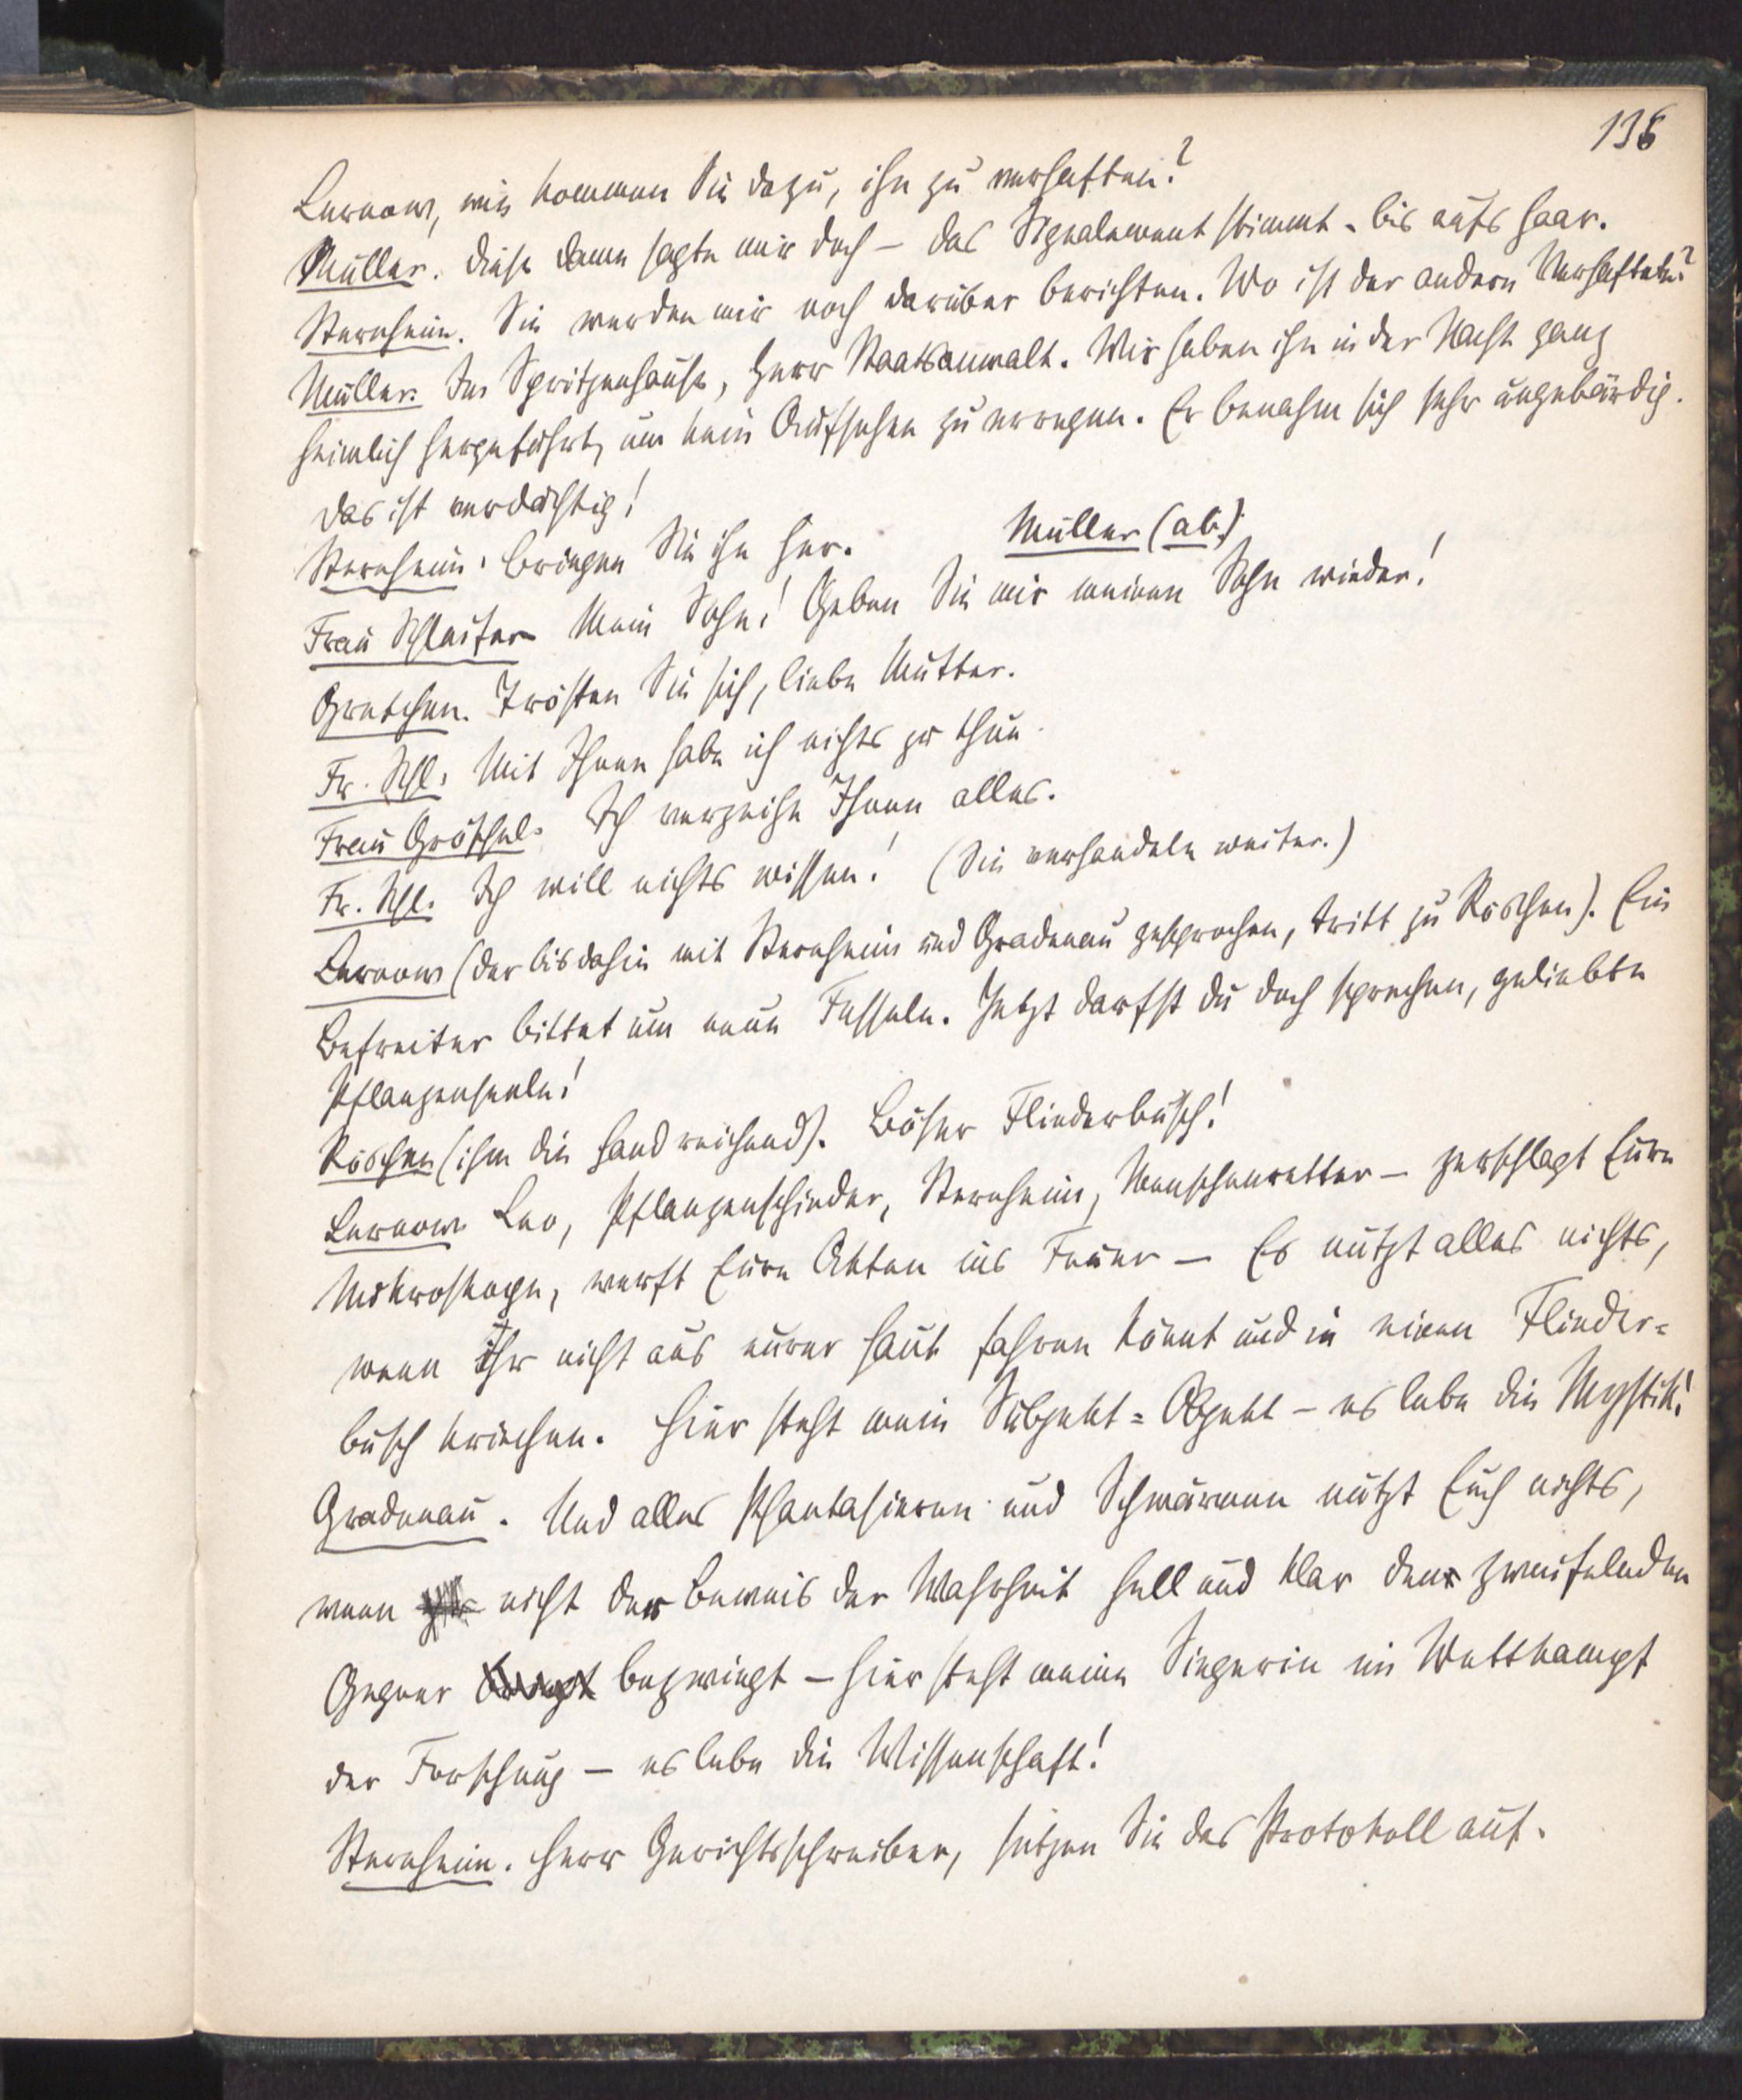 136
Lernow, wie kommen Sie dazu, ihn zu verhaften?
Müller. Diese Dame sagte mir doch – das Signalement stimmt – bis aufs Haar.
Sternheim. Sie werden mir noch darüber berichten. Wo ist der andere Verhaftete?
Müller. Im Spritzenhause, Herr Staatsanwalt. Wir haben ihn in der Nacht ganz
heimlich hergeführt, um kein Aufsehen zu erregen. Er benahm sich sehr ungebärdig.
Das ist verdächtig!
Sternheim. Bringen Sie ihn her. Müller (ab.)
Frau Schleifer Mein Sohn! Geben Sie mir meinen Sohn wieder!
Gretchen. Trösten Sie sich, liebe Mutter.
Fr. Schl. Mit Ihnen habe ich nichts zu thun.
Frau Gröschel. Ich verzeihe Ihnen alles.
Fr. Schl. Ich will nichts wissen! (Sie verhandeln weiter.)
Lernow (der bis dahin mit Sternheim und Gradenau gesprochen, tritt zu Röschen). Ein
Befreiter bittet um neue Fesseln. Jetzt darfst du doch sprechen, geliebte
Pflanzenseele!
Röschen (ihm die Hand reichend). Böser Fliederbusch!
Lernow Leo, Pflanzenschinder, Sternheim, Menschenretter – zerschlagt Eure
Mikroskope, werft Eure Akten ins Feuer – Es nützt alles nichts,
wenn Ihr nicht aus eurer Haut fahren könnt und in einen Flieder-
busch kriechen. Hier steht mein Subjekt-Objekt – es lebe die Mystik!
Gradenau. Und alles Phantasieren und Schwärmen nützt Euch nichts,
wenn nicht der Beweis der Wahrheit hell und klar den zweifelnden
Gegner bezwingt – hier steht meine Siegerin im Wettkampf
der Forschung – es lebe die Wissenschaft!
Sternheim. Herr Gerichtsschreiber, setzen Sie das Protokoll auf.